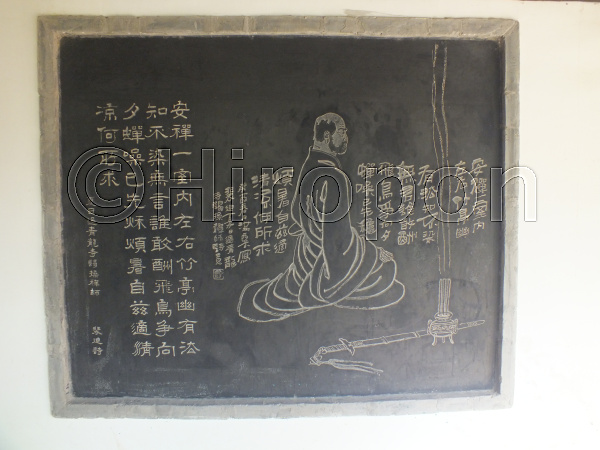 安禪一室內
左右竹亭幽
有法知不染
無言誰敢酬
飛鳥爭向夕
蟬噪已先秋
煩暑自茲適
清涼何所求
安禪一室內左右竹亭幽有法
知不染無言誰敢酬飛鳥爭向
夕蟬噪已先秋煩暑自茲適清
涼何所求
夏日過青龍寺謁操禪師
裴迪詩
©Hiropon